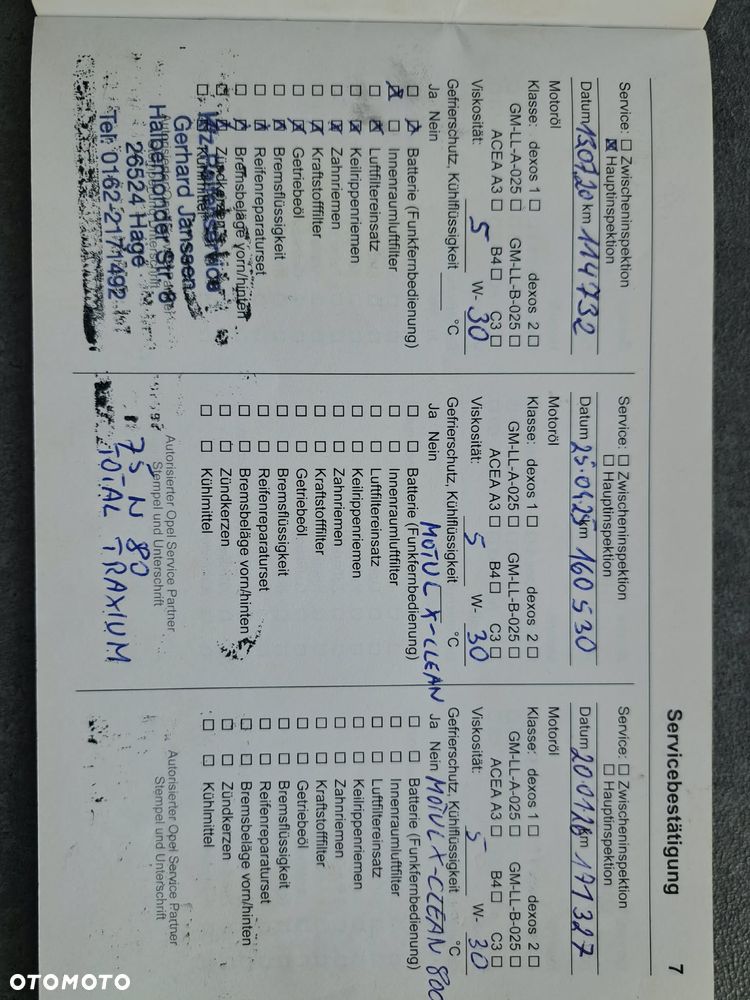 Servicebestätigung
7
Service: ☐ Zwischeninspektion
☒ Hauptinspektion
Datum 15.07.20 km 114732
Motoröl
Klasse: dexos 1 ☐ dexos 2 ☐
GM-LL-A-025 ☐ GM-LL-B-025 ☐
ACEA A3 ☐ B4 ☐ C3 ☐
Viskosität: 5 W- 30
Gefrierschutz, Kühlflüssigkeit °C
Ja Nein
☐ ☒ Batterie (Funkfernbedienung)
☒ ☐ Innenraumluftfilter
☐ ☒ Luftfiltereinsatz
☐ ☒ Keilrippenriemen
☐ ☒ Zahnriemen
☐ ☒ Kraftstofffilter
☐ ☒ Getriebeöl
☐ ☒ Bremsflüssigkeit
☐ ☒ Reifenreparaturset
☐ ☒ Bremsbeläge vorn/hinten
☐ ☒ Zündkerzen
Gerhard Janssen
Halbemonder Str. 8
26524 Hage
Tel. 0162-2171492
Service: ☐ Zwischeninspektion
☐ Hauptinspektion
Datum 25.04.25 km 160530
Motoröl
Klasse: dexos 1 ☐ dexos 2 ☐
GM-LL-A-025 ☐ GM-LL-B-025 ☐
ACEA A3 ☐ B4 ☐ C3 ☐
Viskosität: 5 W- 30
Gefrierschutz, Kühlflüssigkeit °C
Ja Nein MOTUL X-CLEAN
☐ ☐ Batterie (Funkfernbedienung)
☐ ☐ Innenraumluftfilter
☐ ☐ Luftfiltereinsatz
☐ ☐ Keilrippenriemen
☐ ☐ Zahnriemen
☐ ☐ Kraftstofffilter
☐ ☐ Getriebeöl
☐ ☐ Bremsflüssigkeit
☐ ☐ Reifenreparaturset
☐ ☐ Bremsbeläge vorn/hinten
☐ ☐ Zündkerzen
☐ ☐ Kühlmittel
Autorisierter Opel Service Partner
Stempel und Unterschrift
75 W 80
TOTAL TRAXIUM
Service: ☐ Zwischeninspektion
☐ Hauptinspektion
Datum 20.01.26 km 171327
Motoröl
Klasse: dexos 1 ☐ dexos 2 ☐
GM-LL-A-025 ☐ GM-LL-B-025 ☐
ACEA A3 ☐ B4 ☐ C3 ☐
Viskosität: 5 W- 30
Gefrierschutz, Kühlflüssigkeit °C
Ja Nein MOTUL X-CLEAN
☐ ☐ Batterie (Funkfernbedienung)
☐ ☐ Innenraumluftfilter
☐ ☐ Luftfiltereinsatz
☐ ☐ Keilrippenriemen
☐ ☐ Zahnriemen
☐ ☐ Kraftstofffilter
☐ ☐ Getriebeöl
☐ ☐ Bremsflüssigkeit
☐ ☐ Reifenreparaturset
☐ ☐ Bremsbeläge vorn/hinten
☐ ☐ Zündkerzen
☐ ☐ Kühlmittel
Autorisierter Opel Service Partner
Stempel und Unterschrift
OTOMOTO